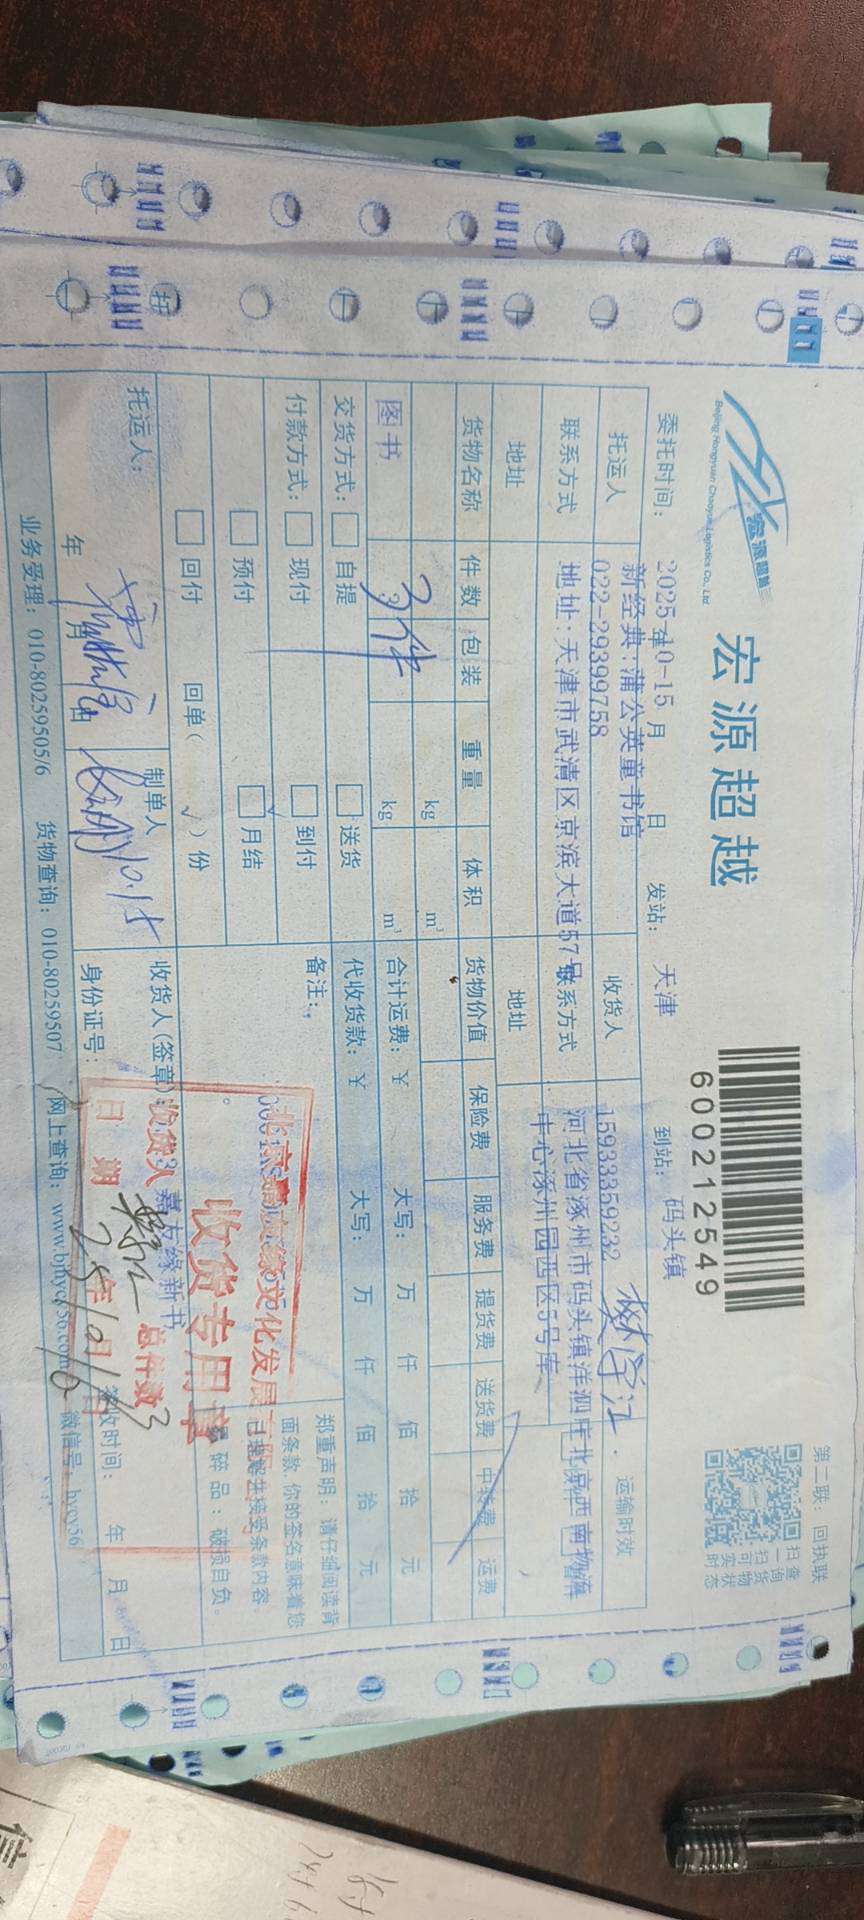 宏源超越
Beijing Hongyuan Chaoyue Logistics Co., Ltd
宏源超越
600212549
第二联：回执联
扫一扫
查询货物
可实时状态
委托时间：
2025-10-15
年 月 日
发站：
天津
到站：
码头镇
托运人
新经典：蒲公英童书馆
收货人
运输时效
联系方式
022-29399758
联系方式
15933359232
地址
地址：天津市武清区京滨大道57号
地址
河北省涿州市码头镇洋泗庄北京西南物流
中心涿州园西区5号库
货物名称
件数
包装
重量
体积
货物价值
保险费
服务费
提货费
送货费
中转费
运费
kg
m³
图书
3件
kg
m³
合计运费：￥
大写：
万 仟 佰 拾 元
交货方式：
自提
送货
代收货款：￥
大写：
万 仟 佰 拾 元
付款方式：
现付
到付
备注：
郑重声明：请仔细阅读背
面条款，你的签名意味着您
已理解并接受条款内容。
预付
月结
易碎品：破损自负。
回付
回单（√）份
嘉友缘新书
文化发展
收货专用章
收货人
总件数
3
日期
25年10月
托运人：
年 月 日
制单人
10.15
收货人(签章)：
身份证号：
签收时间：
年 月 日
业务受理：010-80259505/6
货物查询：010-80259507
网上查询：www.bjhycy56.com
微信号：hycy56